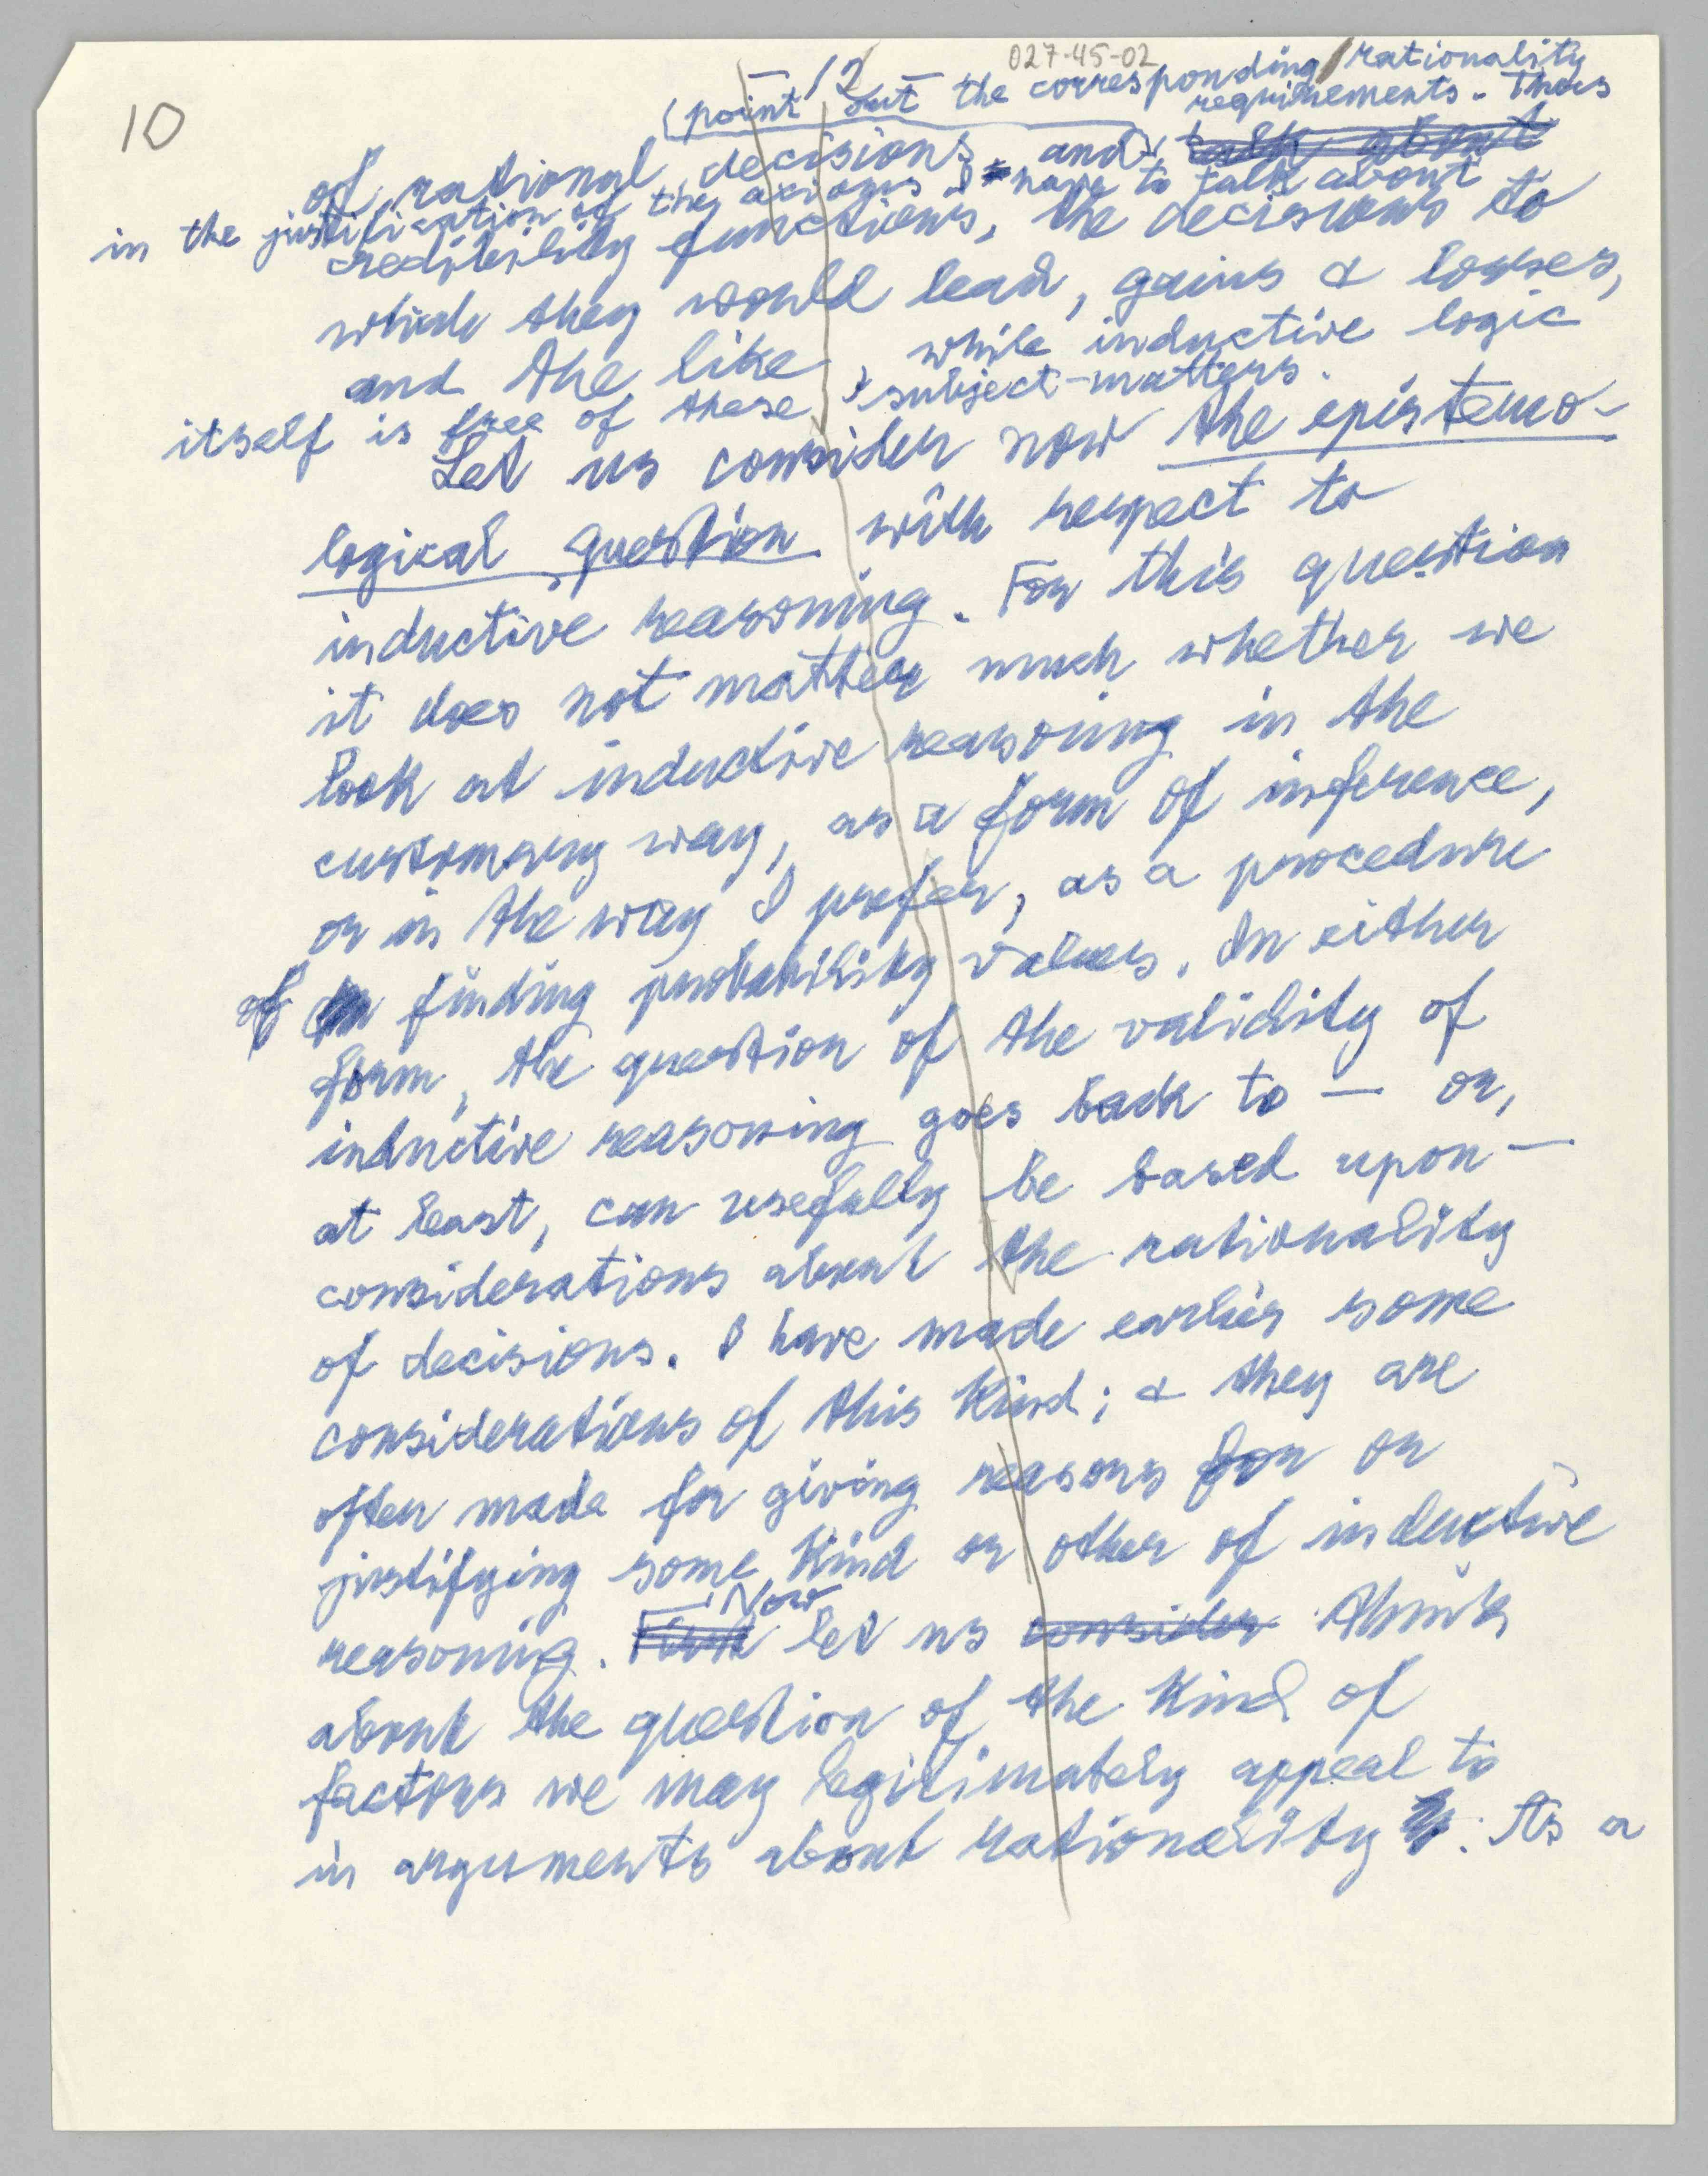 027-45-02
10
– 12 –
point out the corresponding rationality
requirements. Thus
of rational decisions, and talk about
in the justification of the axioms I have to talk about
credibility functions, the decisions to
which they would lead, gains & losses,
and the like, while inductive logic
itself is free of these subject-matters.
Let us consider now the epistemo-
logical question with respect to
inductive reasoning. For this question
it does not matter much whether we
look at inductive reasoning in the
customary way, as a form of inference,
or in the way I prefer, as a procedure
of finding probability values. In either
form, the question of the validity of
inductive reasoning goes back to — or,
at least, can usefully be based upon —
considerations about the rationality
of decisions. I have made earlier some
considerations of this kind; & they are
often made for giving reasons for or
justifying some kind or other of inductive
Now
reasoning. let us consider think
about the question of the kind of
factors we may legitimately appeal to
in arguments about rationality. As a